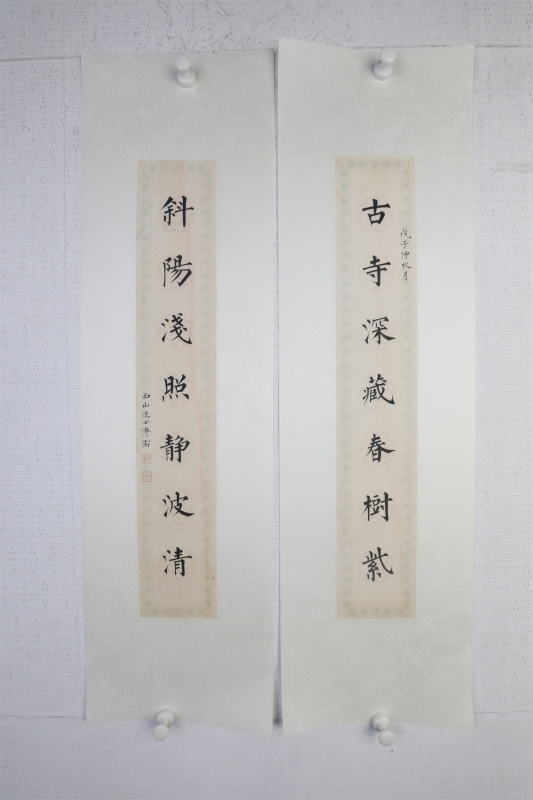 古寺深藏春樹紫
戊子仲秋月
斜陽淺照静波清
西山逸士溥儒